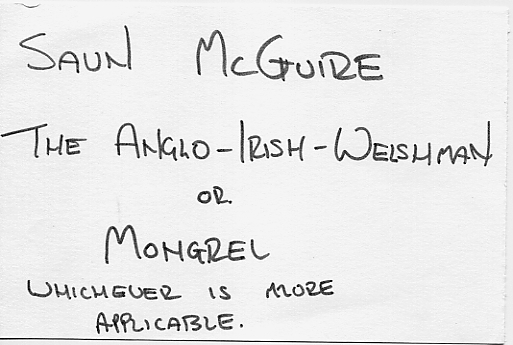 SAUN MCGUIRE
THE ANGLO-IRISH-WELSHMAN
OR
MONGREL
WHICHEVER IS MORE
APPLICABLE.